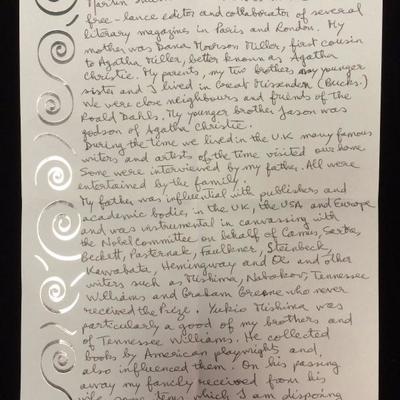 free-lance editor and collaborator of several
literary magazines in Paris and London. My
mother was Dana Morrson Miller, first cousin
to Agatha Miller, better known as Agatha
Christie. My parents, my two brothers, my younger
sister and I lived in Great Missenden (Bucks.)
We were close neighbours and friends of the
Roald Dahls. My younger brother Jason was
godson of Agatha Christie.
During the time we lived in the U.K many famous
writers and artists of the time visited our home
Some were interviewed by my father. All were
entertained by the family.
My father was influential with publishers and
academic bodies, in the UK, the USA and Europe
and was instrumental in canvassing with
the Nobel Committee on behalf of Camus, Sartre,
Beckett, Pasternak, Faulkner, Steinbeck,
Kawabata, Hemingway and Oe and other
writers such as Mishima, Nabokov, Tennessee
Williams and Graham Greene who never
received the Prize. Yukio Mishima was
particularly a good of my brothers and
of Tennessee Williams. He collected
books by American playwrights and
also influenced them. On his passing
away my family received from his
wife some items which I am disposing